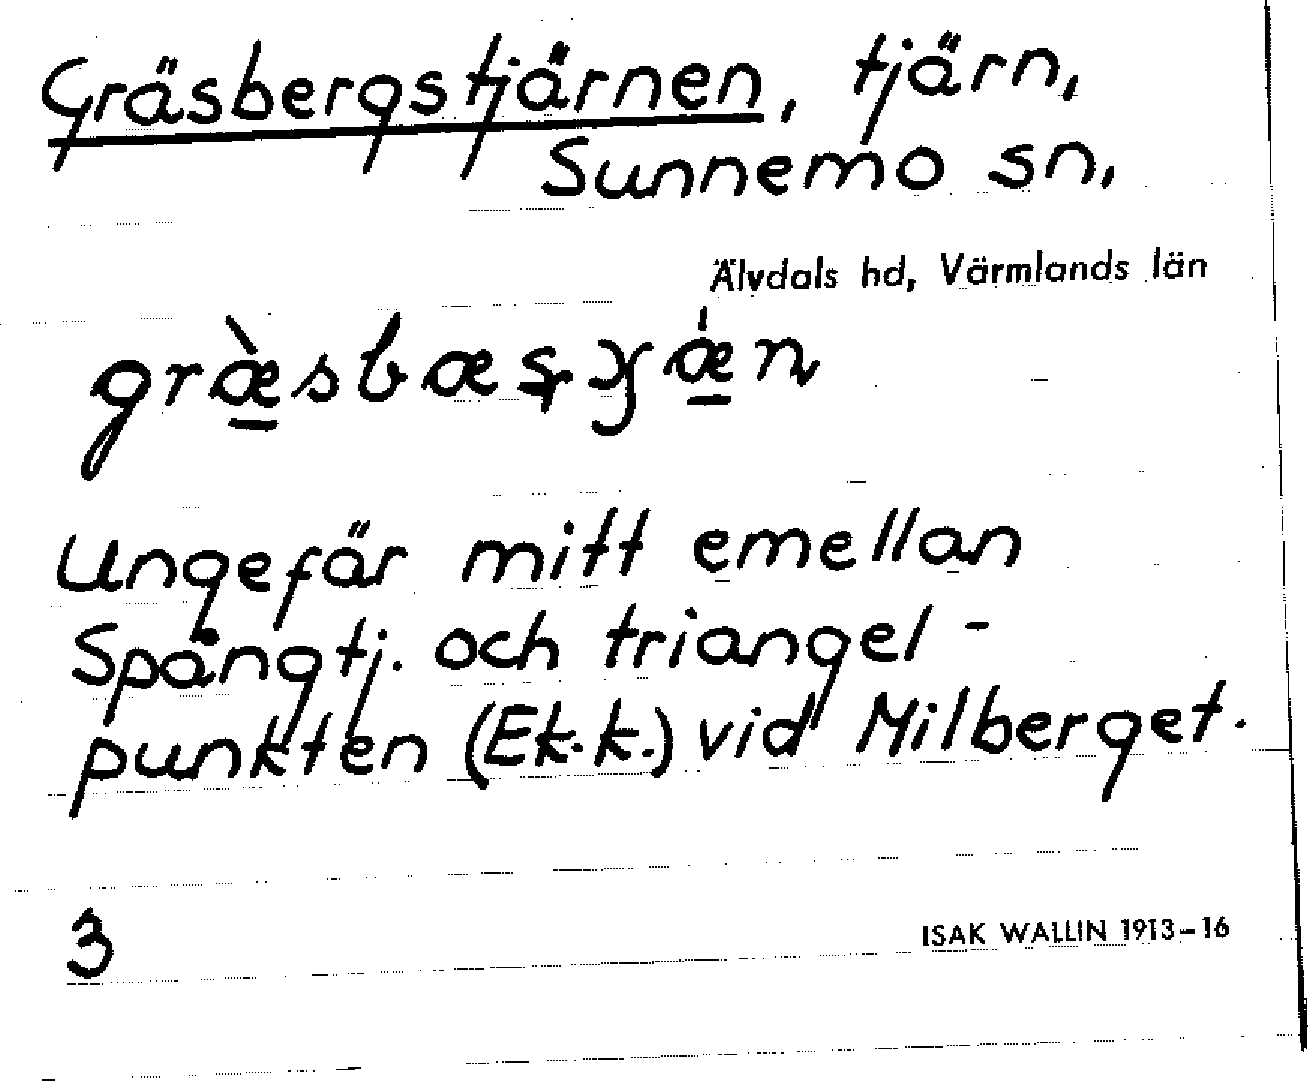 Gräsbergstjärnen, tjärn,
Sunnemo sn,
Älvdals hd, Värmlands län
Ungefär mitt emellan
Spångtj. och triangel-
punkten (Ek.k.) vid Milberget.
3
ISAK WALLIN 1913–16